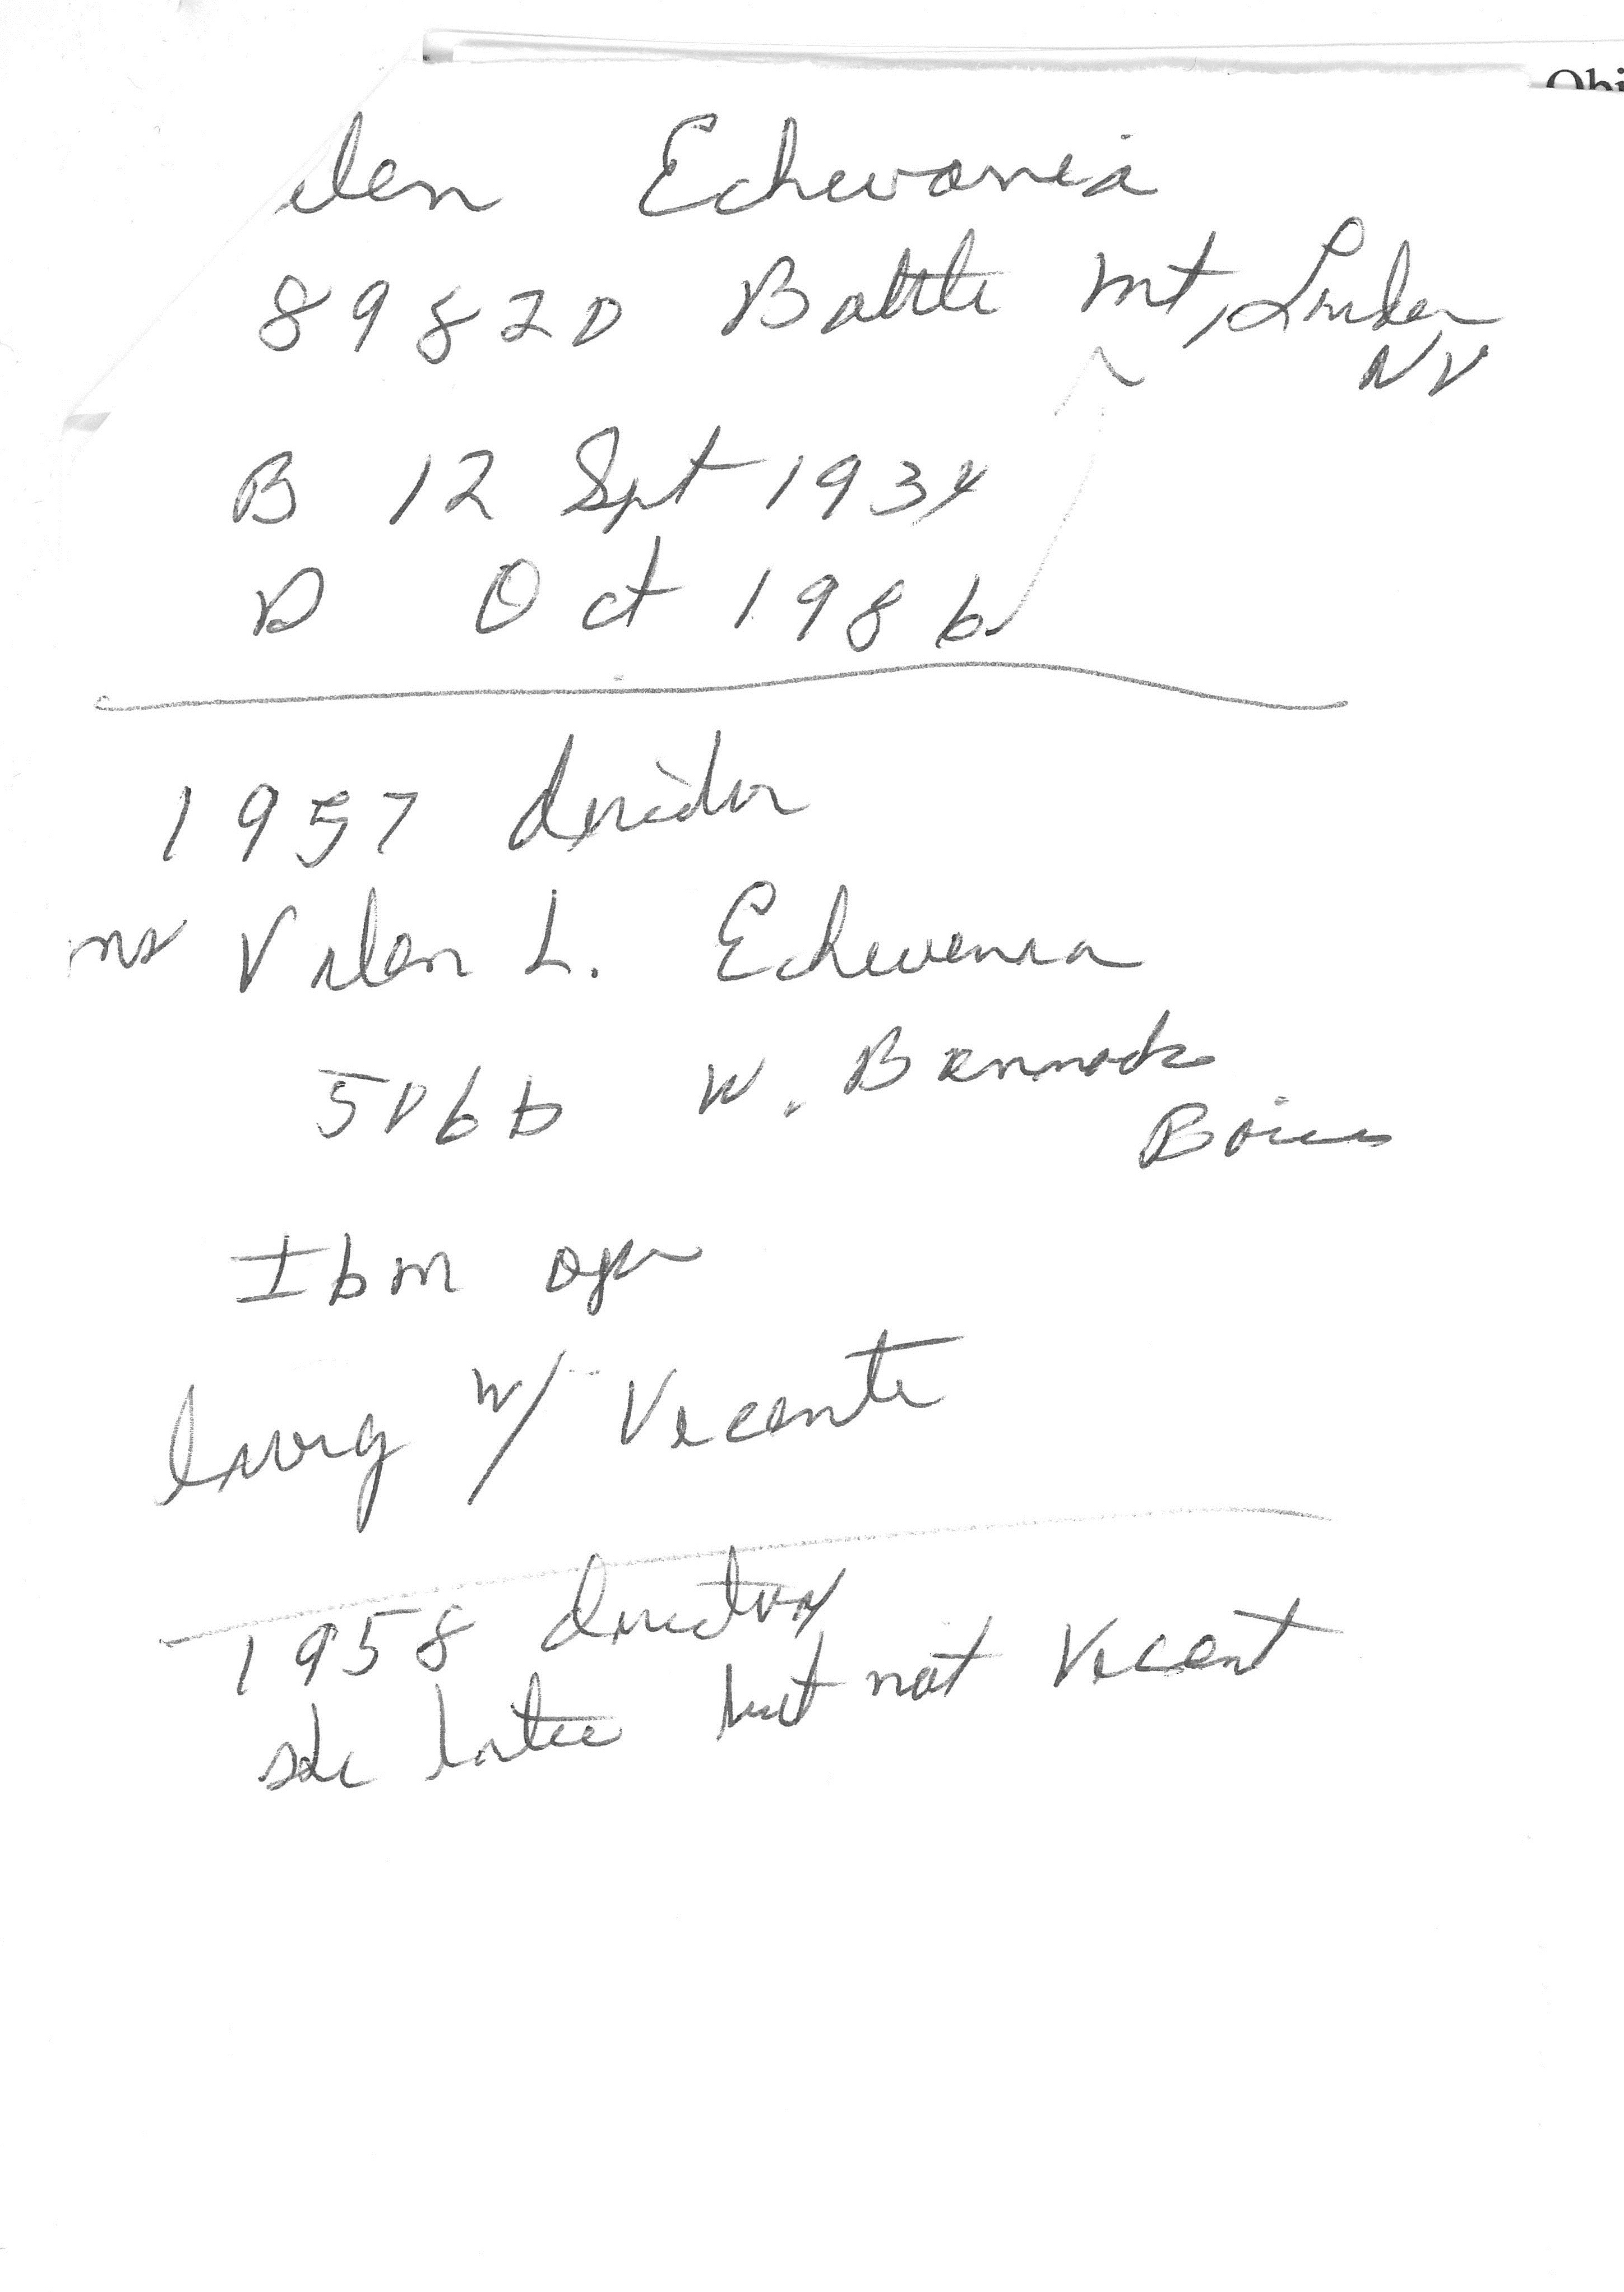 Obi
ilen Echevarria
89820 Battle Mt, Lander
NV
B 12 Sept 1934
D Oct 1986
1957 director
ms Vilen L. Echeverria
5066 W. Bannock
Boise
Ibm opr
living w/ Vicente
1958 director
she later but not Vicent